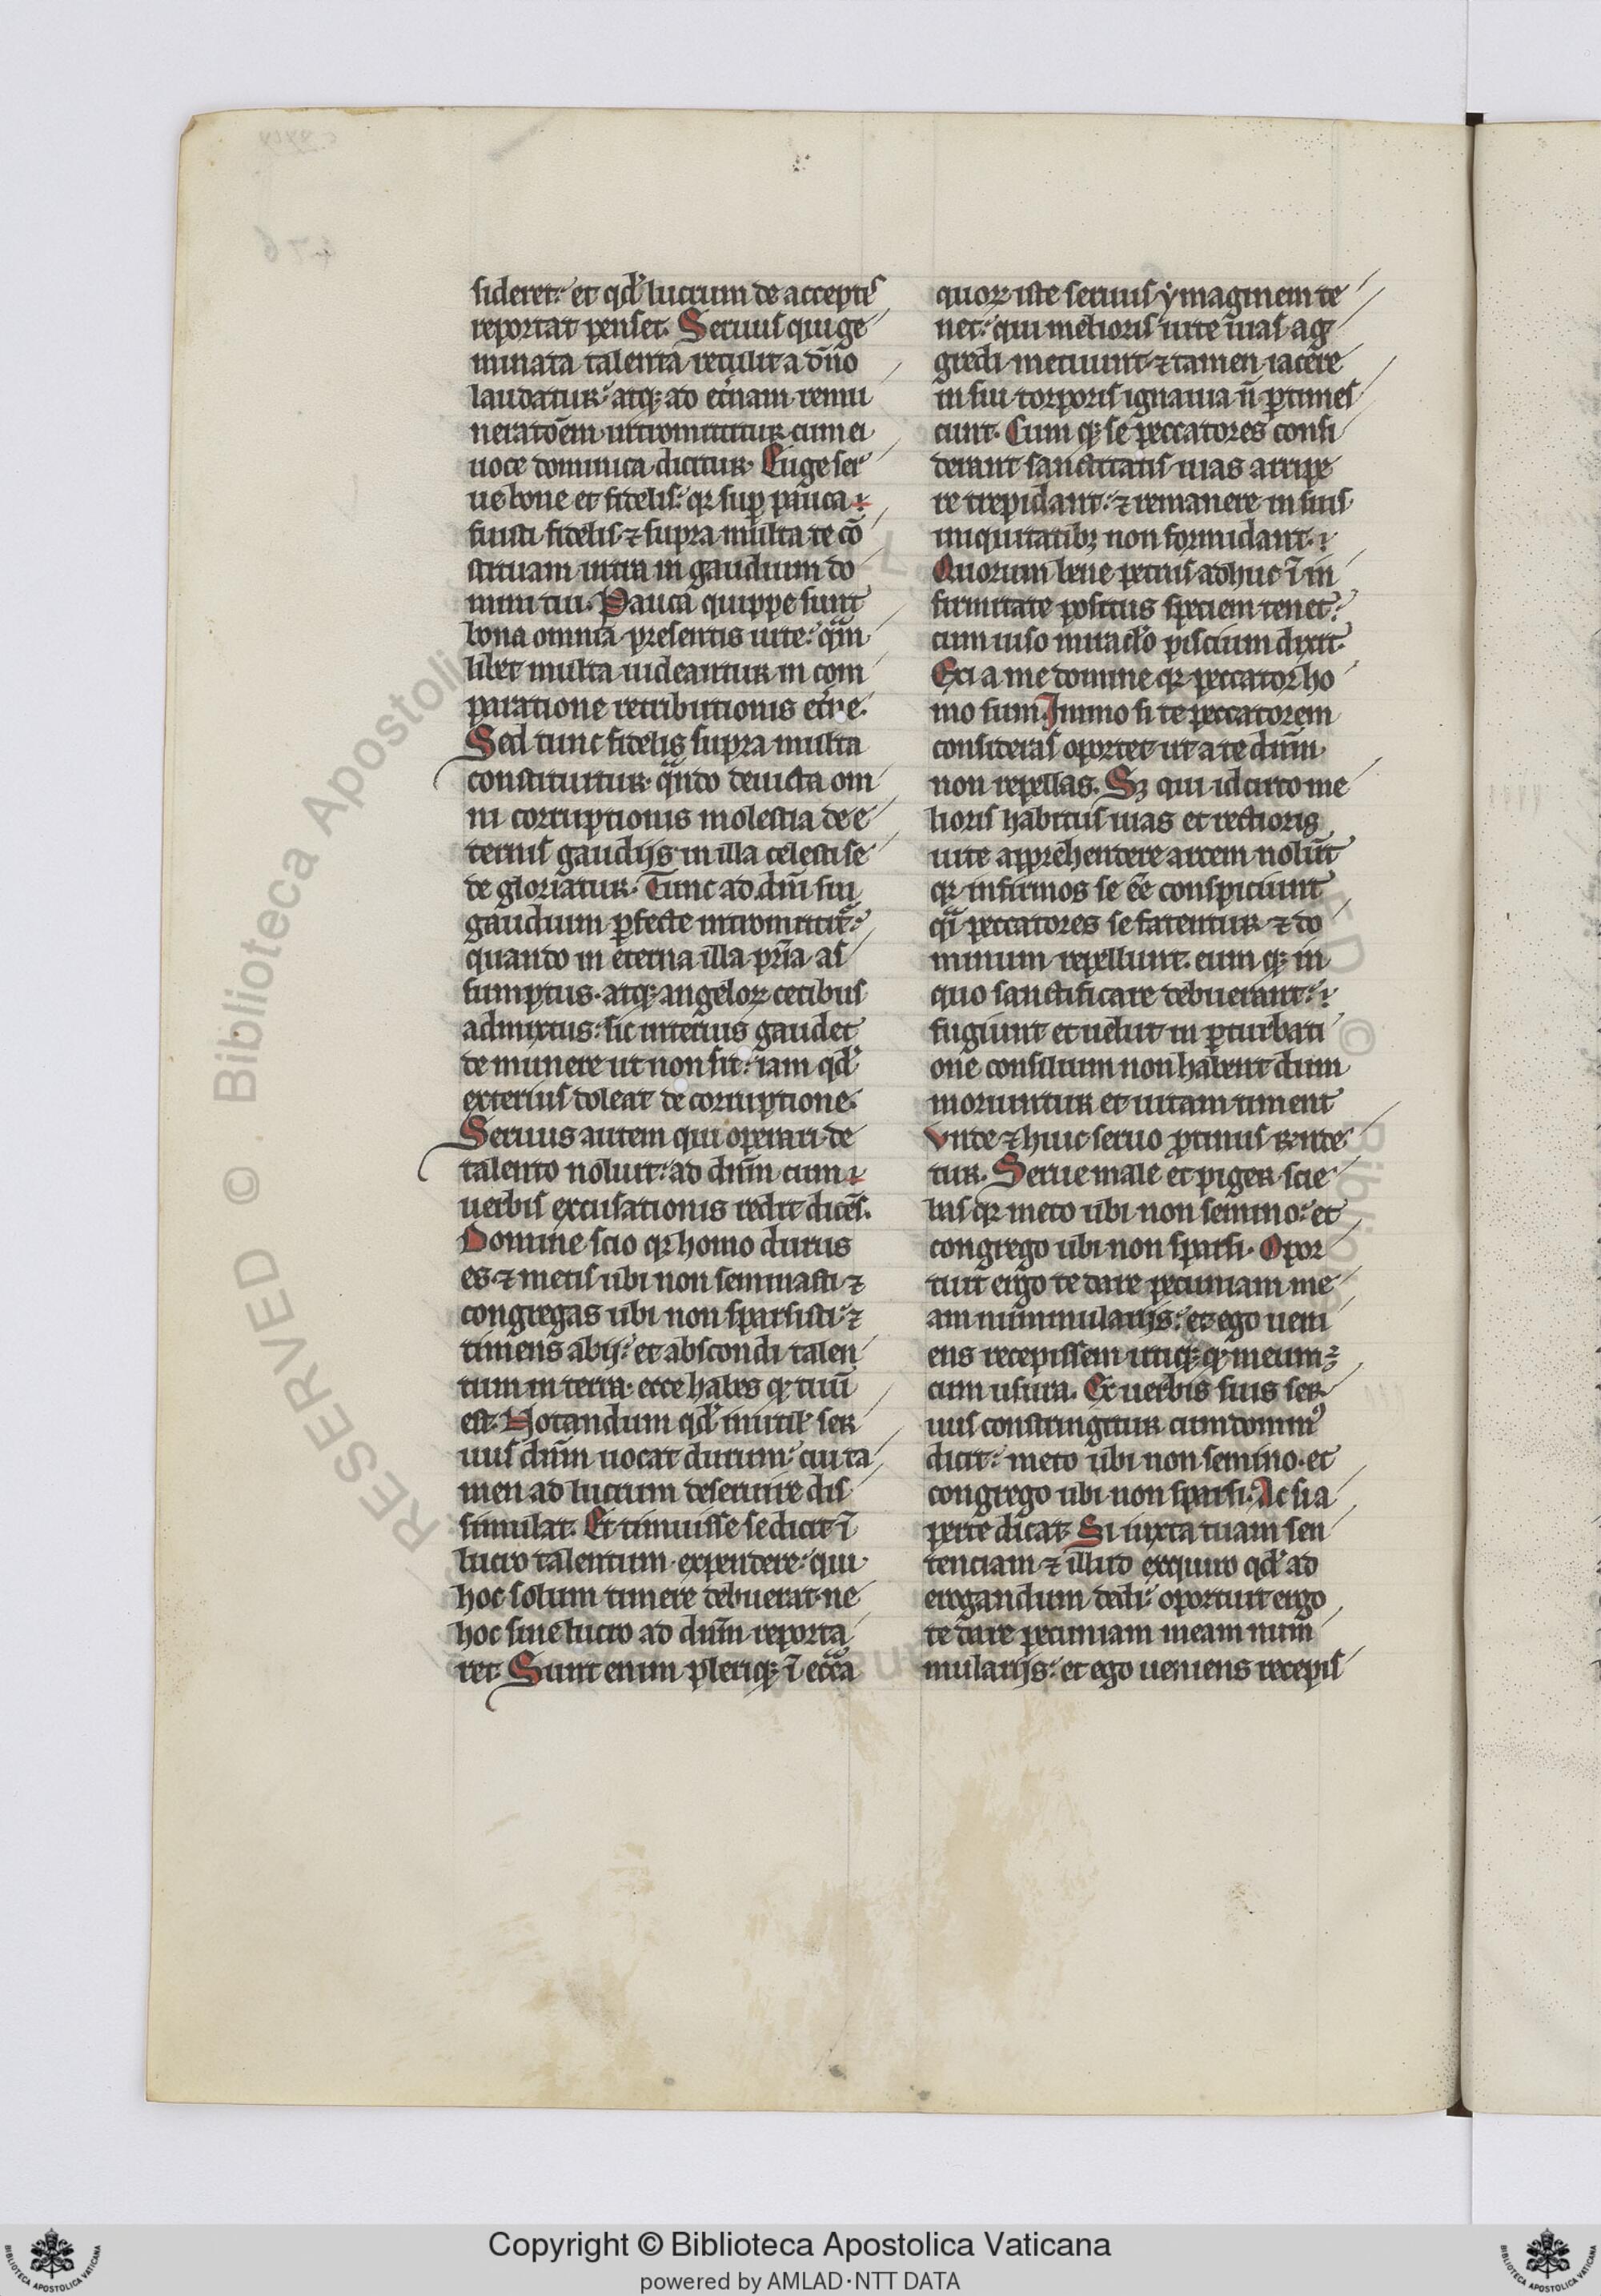 sideret et qd' lucrum de acceptis
reportat penset. Seruus qui ge
minata talenta retulit a dn̄o
laudatur. atq; ad et'nam remu
neratōem introimittitur cum ei
uoce dominica dicitur. Euge ser
ue bone et fidelis. qr sup pauca
fuisti fidelis ⁊ supra multa te cō
stituam intra in gaudium do
mini tui. Pauca quippe sunt
bona omnia presentis uite. qm̄
libet multa uideantur in com
paratione retributionis et'ne.
Sed tunc fidelis supra multa
constituitur. qn̄do deuicta om
ni corruptionis molestia de e
ternis gaudijs in illa celesti se
de gloriatur. Tunc ad dn̄i sui
gaudium pfecte intromittit'.
quando in eterna illa pr̄ia as
sumptus. atq; angeloꝝ cetibus
admixtus. sic interius gaudet
de munere ut non sit. iam qd'
exterius doleat de corruptione.
Seruus autem qui operari de
talento noluit. ad dn̄m cum
uerbis excusationis redit dicēs.
Domine scio qr homo durus
es. ⁊ metis ubi non seminasti ⁊
congregas ubi non sparsisti. ⁊
timens abij. et abscondi talen
tum in terra. ecce habes q' tuū
est. Notandum qd' inutil' ser
uus dn̄m uocat durum. cui ta
men ad lucrum deseruire dis
simulat. Et timuisse se dicit ī
lucro talentum expendere. qui
hoc solum timere debuerat. ne
hoc sine lucro ad dn̄m reporta
ret. Sunt enim pleriq; ī ecc̄a
quoꝝ iste seruus ymaginem te
net. qui melioris uite uias ag
gredi metuunt. ⁊ tamen iacere
in sui torporis ignauia n̄ ptimes
cunt. Cum q; se peccatores consi
derant sanctitatis uias arripe
re trepidant. ⁊ remanere in suis
iniquitatib; non formidant.
Quorum bene petrus adhuc ī in
firmitate positus speciem tenet.
cum uiso miraclo piscium dixit.
Exi a me domine qr peccator ho
mo sum. Immo si te peccatorem
consideras oportet ut a te dn̄m
non repellas. Sꝫ qui idcirco me
lioris habitus uias et rectioris
uite apprehendere arcem nolūt
qr infirmos se ēē conspiciunt
q̄i peccatores se fatentur ⁊ do
minum repellunt. eum q; in
quo sanctificare debuerant.
fugiunt et uelut in pturbati
one consilium non habent dum
moriuntur et uitam timent
Vnde ⁊ huic seruo ptinus rn̄de
tur. Serue male et piger scie
bas qr meto ubi non semino. et
congrego ubi non sparsi. Opor
tuit ergo te dare pecuniam me
am nummularijs. et ego ueni
ens recepissem utiq; q' meum ē
cum usura. Ex uerbis suis ser
uus constringitur cum domin'
dicit. meto ubi non semino. et
congrego ubi non sparsi. Ac si a
perte dicat. Si iuxta tuam sen
tenciam ⁊ illud exquiro qd' ad
erogandum dedi. oportuit ergo
te dare pecuniam meam num
mularijs. et ego ueniens recepis
Copyright © Biblioteca Apostolica Vaticana
powered by AMLAD·NTT DATA